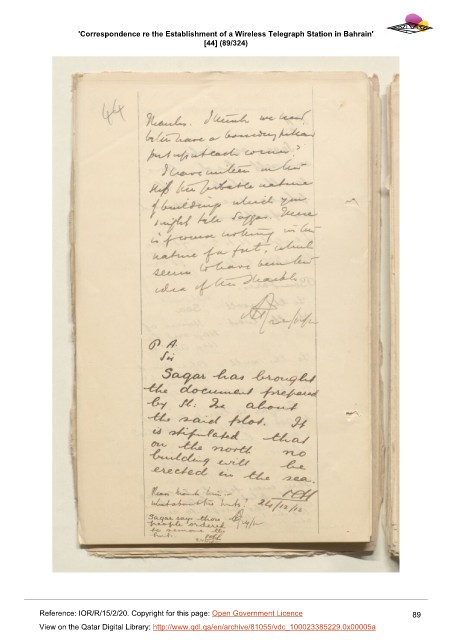 'Correspondence re the Establishment of a Wireless Telegraph Station in Bahrain'
[44] (89/324)
44
Thanks. I think we had
better have a boundary pillar
put up at each corner?
I have written
the probable nature
of buildings which you
might tell Saggar. There
is of course nothing in the
nature of a fort, which
seems to have been the
idea of the Shaikh.
P. A.
Sir
Sagar has brought
the document prepared
by Sh: Isa about
the said plot. It
is stipulated that
on the north no
building will be
erected in the sea.
24/12/12
Sagar says those
people ordered
to remove the
huts.
Reference: IOR/R/15/2/20. Copyright for this page: Open Government Licence
89
View on the Qatar Digital Library: http://www.qdl.qa/en/archive/81055/vdc_100023385229.0x00005a